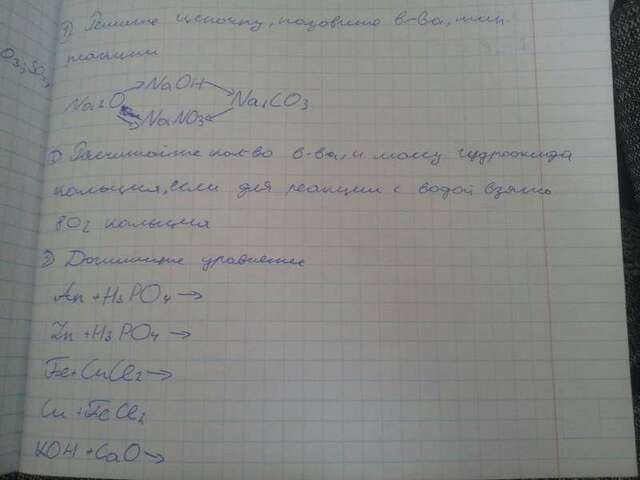 1) Решите цепочку, назовите в-ва, тип
реакции
O3, SO2,
Na2O NaOH Na2CO3
NaNO3
2) Рассчитайте кол-во в-ва, и массу гидроксида
кальция, если для реакции с водой взять
80г кальция
3) Допишите уравнение
+ H3PO4 →
Zn + H3PO4 →
Fe + CuCl2 →
Cu + FeCl2
KOH + CaO →